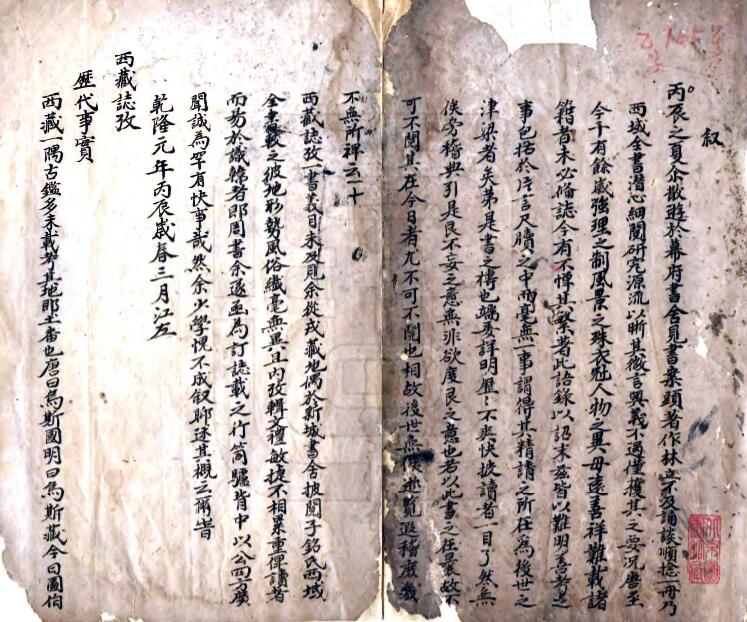 叙
丙辰之夏余散遊於幕府書舍見書案頭著作林立不及誦談順捻一冊乃
西域全書潜心細閱研究源流以晰其微言奧義不過僅獲其之要況歷至
今千有餘歲強理之制風景之殊衣冠人物之異毋遠善祥難載諸
籍者未必俻誌今有不惮其繁者此語錄以詔末玆皆以難明善考之
事包括於片言尺牘之中而毫無一事謂得其精請之所在為後世之
津梁者矣第是書之摶也端委詳明歷歷不爽快披讀者一目了然無
俟旁稽典引是艮不妄之意無非欲度艮之意也若以此書之在前故不
可不閱其在今日者尤不可不閱也相故後世無
不無所裨云爾
西藏誌攷一書義目未及見余從戎藏地偶於新城書舍披閱子銘氏西域
全書數之彼地形勢風俗纎毫無異且内攷輯文禮敏捷不相累重俾讀者
而易於識韓者即周書余遂亟為訂誌載之行笥驢背中以公四方廣
聞誠為罕有快事哉然余少學愧不成叙聊述其概云爾旹
乾隆元年丙辰歲春三月江左
西藏誌攷
歷代事實
西藏一隅古鑑多未載攷其地即土番也唐曰烏斯國明曰烏斯藏今曰圖伯